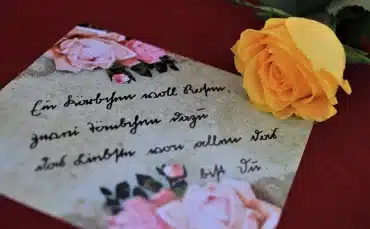 Ein Körbchen voll Rosen,
zwei Täubchen dazu
das Liebste von allen das
bist Du